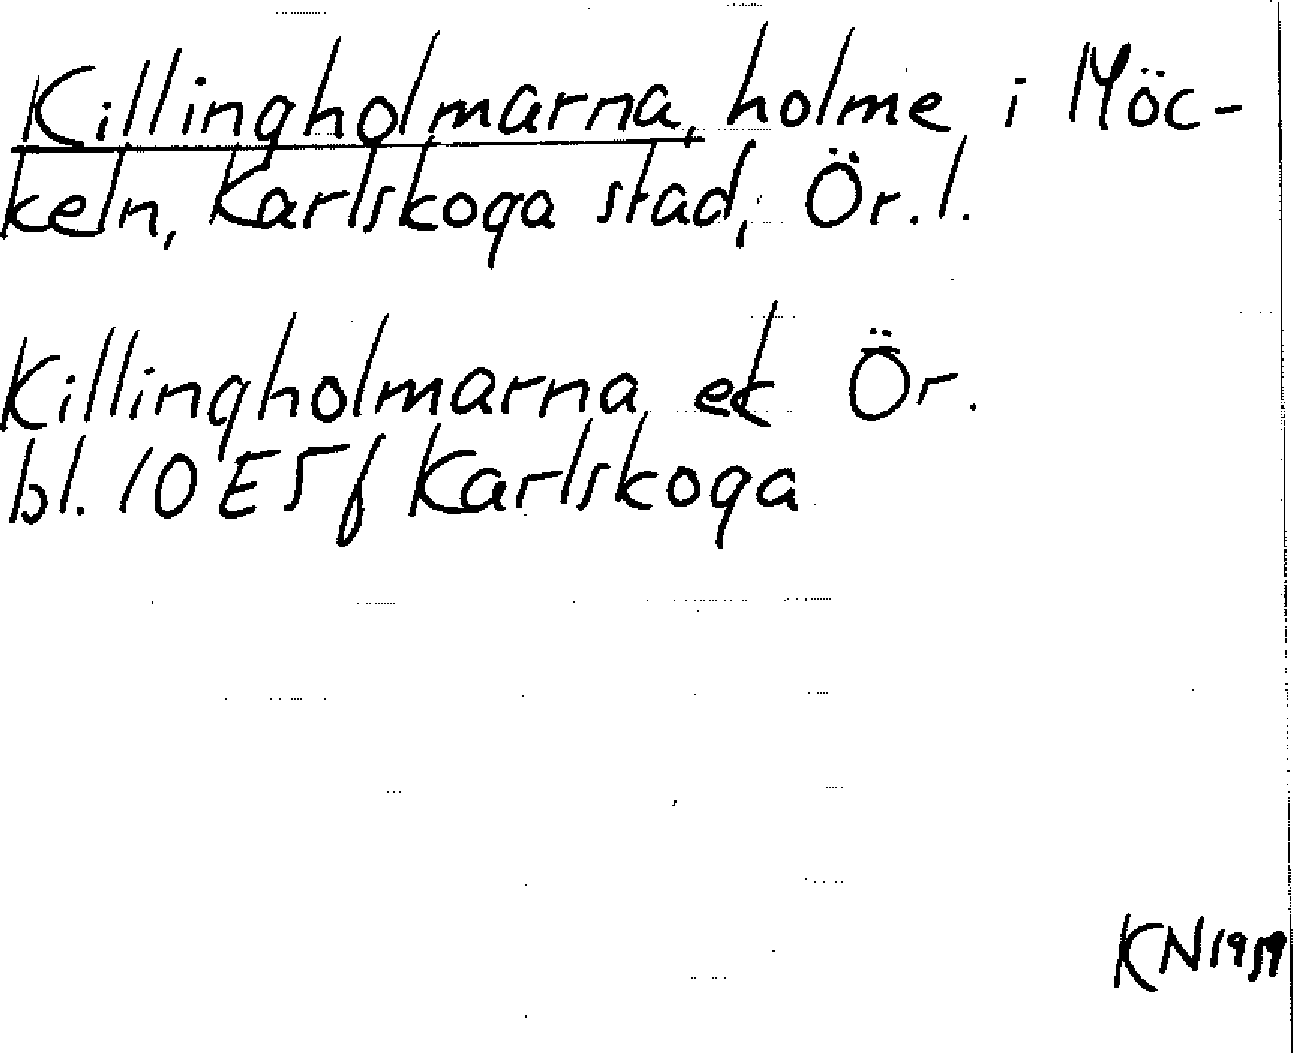 Killingholmarna, holme i Möc-
keln, Karlskoga stad, Ör. l.
Killingholmarna ek Ör.
bl. 10 E5f Karlskoga
KN 1959